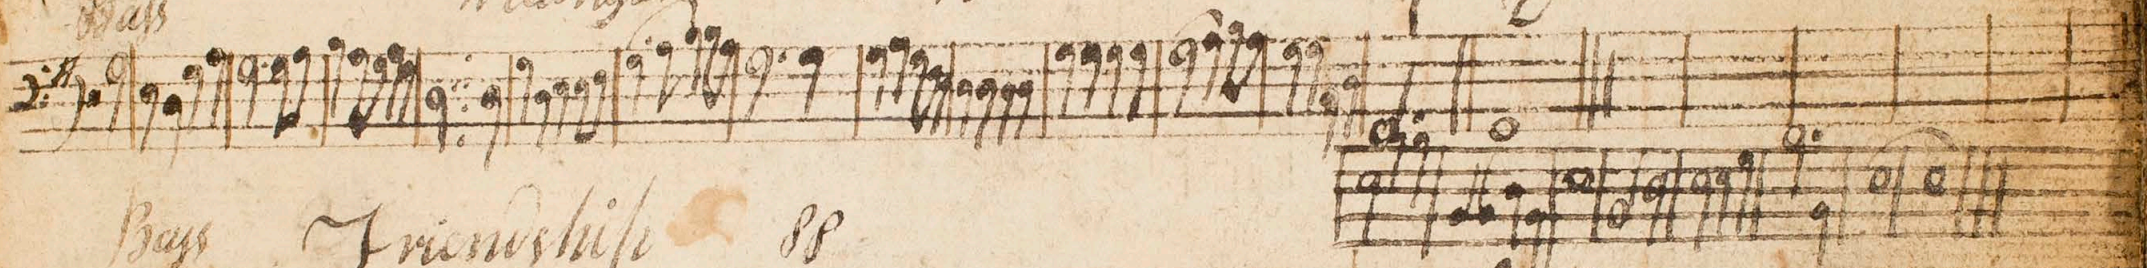 Bass
Bass Friendship 88